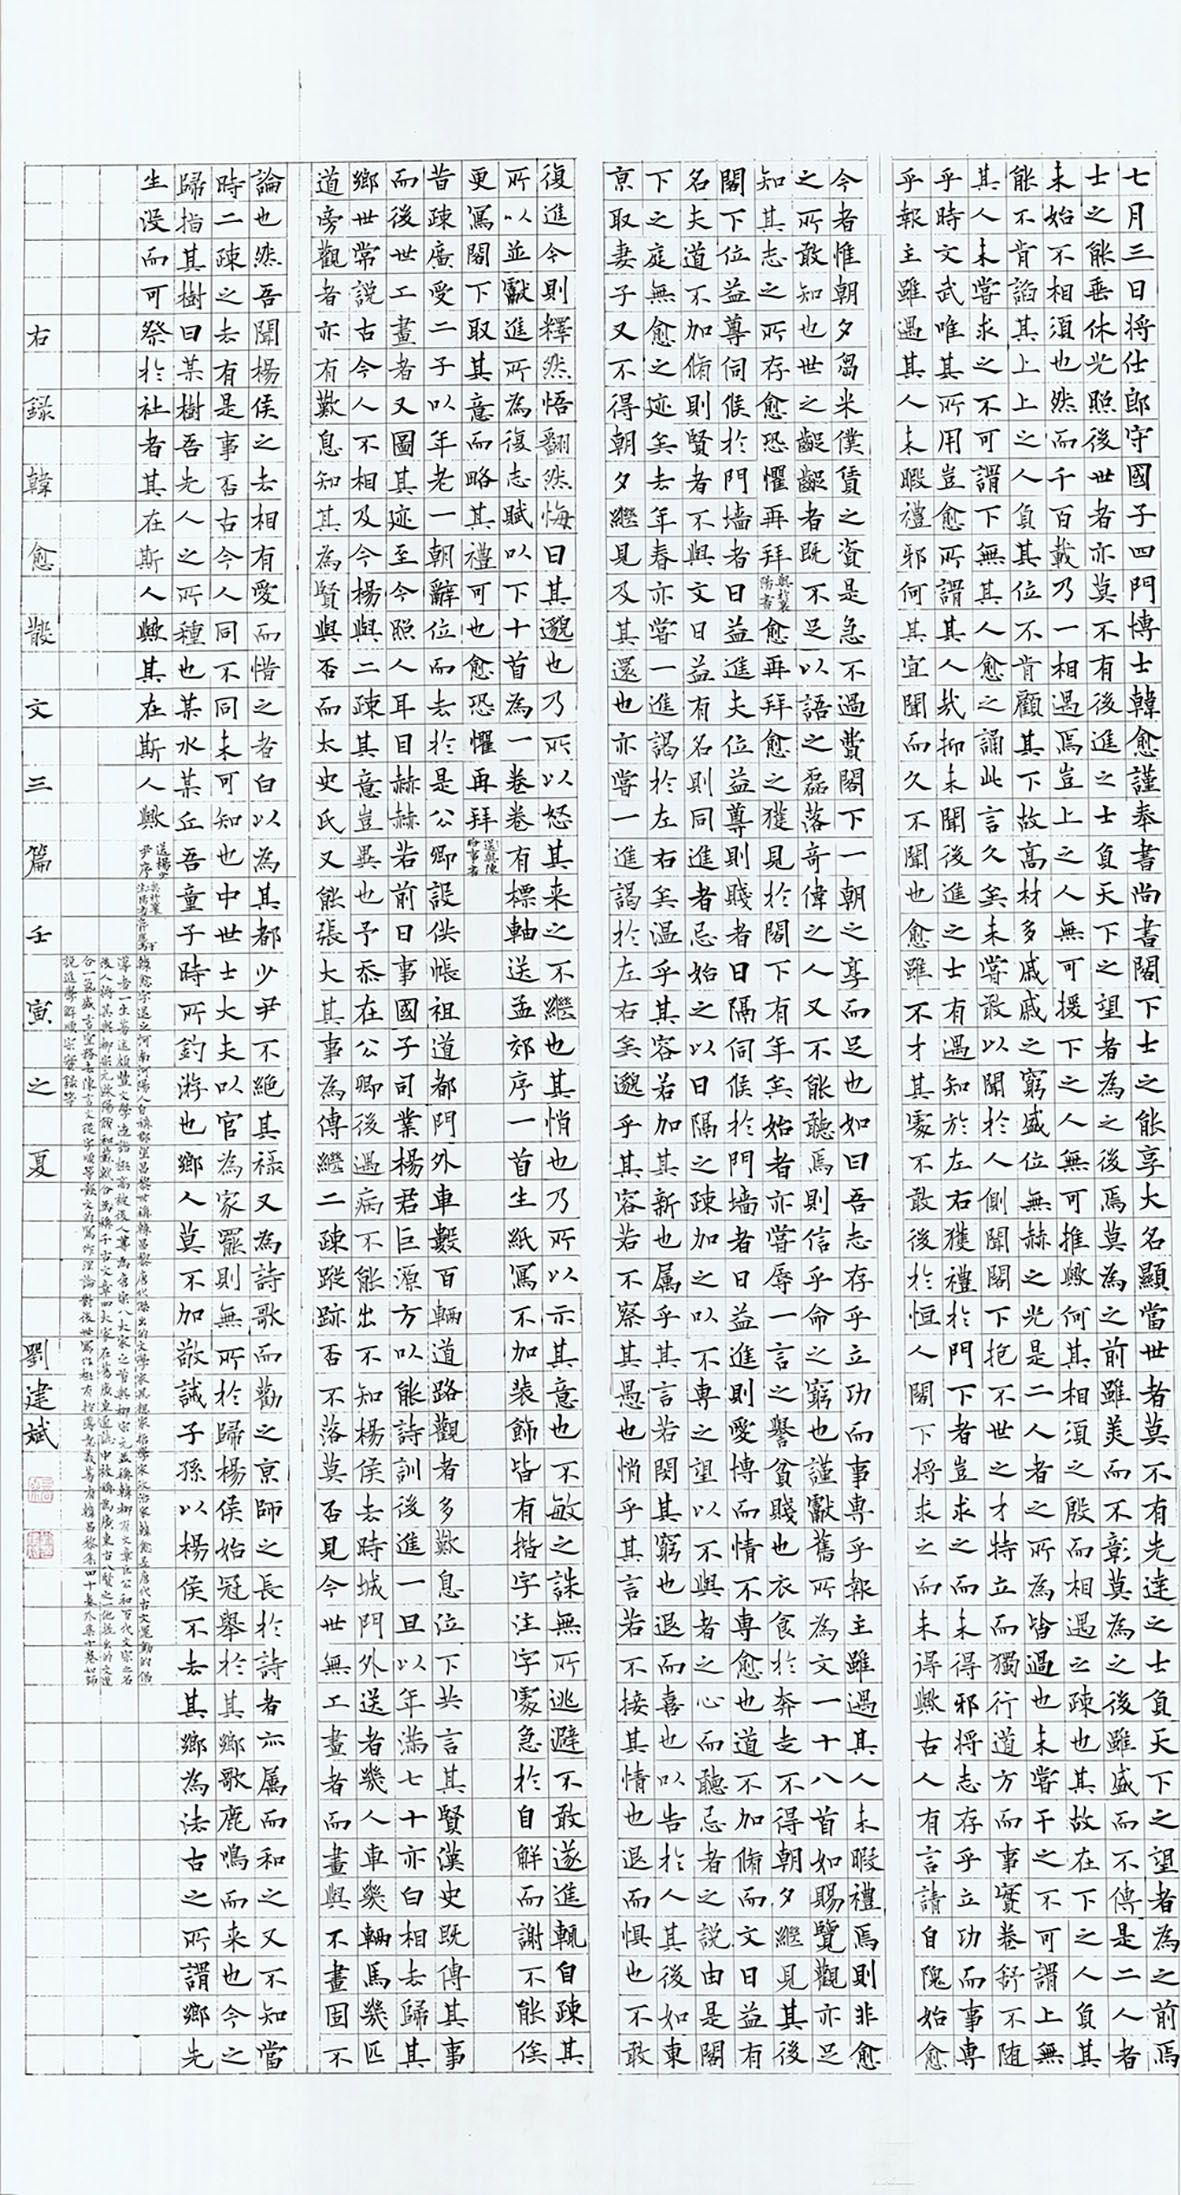 七月三日将仕郎守國子四門博士韓愈謹奉書尚書閣下士之能享大名顯當世者莫不有先達之士負天下之望者為之前焉
士之能垂休光照後世者亦莫不有後進之士負天下之望者為之後焉莫為之前雖美而不彰莫為之後雖盛而不傳是二人者
未始不相須也然而千百載乃一相遇焉豈上之人無可援下之人無可推歟何其相須之殷而相遇之疎也其故在下之人負其
能不肯諂其上上之人負其位不肯顧其下故髙材多戚戚之窮盛位無赫之光是二人者之所為皆過也未嘗干之不可謂上無
其人未嘗求之不可謂下無其人愈之誦此言久矣未嘗敢以聞於人側聞閣下抱不世之才特立而獨行道方而事實卷舒不随
乎時文武唯其所用豈愈所謂其人哉抑未聞後進之士有遇知於左右獲禮於門下者豈求之而未得邪将志存乎立功而事専
乎報主雖遇其人未暇禮邪何其宜聞而久不聞也愈雖不才其處不敢後於恒人閣下将求之而未得歟古人有言請自隗始愈
今者惟朝夕芻米僕賃之資是急不過費閣下一朝之享而足也如曰吾志存乎立功而事専乎報主雖遇其人未暇禮焉則非愈
之所敢知也世之齪齪者既不足以語之磊落奇偉之人又不能聽焉則信乎命之窮也謹獻舊所為文一十八首如賜覽觀亦足
知其志之所存愈恐懼再拜與於襄陽書愈再拜愈之獲見於閣下有年矣始者亦嘗辱一言之譽貧賤也衣食於奔走不得朝夕繼見其後
閣下位益尊伺候於門墻者日益進夫位益尊則賤者日隔伺候於門墻者日益進則愛博而情不専愈也道不加脩而文日益有
名夫道不加脩則賢者不與文日益有名則同進者忌始之以日隔之疎加之以不専之望以不與者之心而聽忌者之説由是閣
下之庭無愈之迹矣去年春亦嘗一進謁於左右矣温乎其容若加其新也属乎其言若閔其窮也退而喜也以告於人其後如東
京取妻子又不得朝夕繼見及其還也亦嘗一進謁於左右矣邈乎其容若不察其愚也悄乎其言若不接其情也退而懼也不敢
復進今則釋然悟翻然悔曰其邈也乃所以怒其来之不繼也其悄也乃所以示其意也不敏之誅無所逃避不敢遂進輒自疎其
所以並獻進所為復志賦以下十首為一卷卷有標軸送孟郊序一首生紙寫不加装飾皆有揩字注字處急於自解而謝不能俟
更寫閣下取其意而略其禮可也愈恐懼再拜送與陳給事書
昔疎廣受二子以年老一朝辭位而去於是公卿設供帳祖道都門外車數百輛道路觀者多歎息位下共言其賢漢史既傳其事
而後世工畫者又圖其迹至今照人耳目赫赫若前日事國子司業楊君巨源方以能詩訓後進一旦以年滿七十亦白相去歸其
鄉世常説古今人不相及今楊與二疎其意豈異也予忝在公卿後遇病不能出不知楊侯去時城門外送者幾人車幾輛馬幾匹
道旁觀者亦有歎息知其為賢與否而太史氏又能張大其事為傳繼二疎蹤跡否不落莫否見今世無工畫者而畫與不畫固不
論也然吾聞楊侯之去相有愛而惜之者白以為其都少尹不絶其禄又為詩歌而勸之京師之長於詩者亦属而和之又不知當
時二疎之去有是事否古今人同不同未可知也中世士大夫以官為家罷則無所於歸楊侯始冠舉於其鄉歌鹿鳴而来也今之
歸指其樹曰某樹吾先人之所種也某水某丘吾童子時所釣游也鄉人莫不加敬誡子孫以楊侯不去其鄉為法古之所謂鄉先
生没而可祭於社者其在斯人歟其在斯人歟送楊少尹序
韓愈字退之河南河陽人自稱郡望昌黎世稱韓昌黎唐代傑出的文學家思想家哲學家政治家韓愈是唐代古文運動的倡
導者
後人
合一氣盛言宜務去陳言文從字順等散文的寫作理論對後世寫作極有指導意義著有韓昌黎集四十卷外集十卷如師
説進學解順宗實錄等
右録韓愈散文三篇壬寅之夏劉建斌